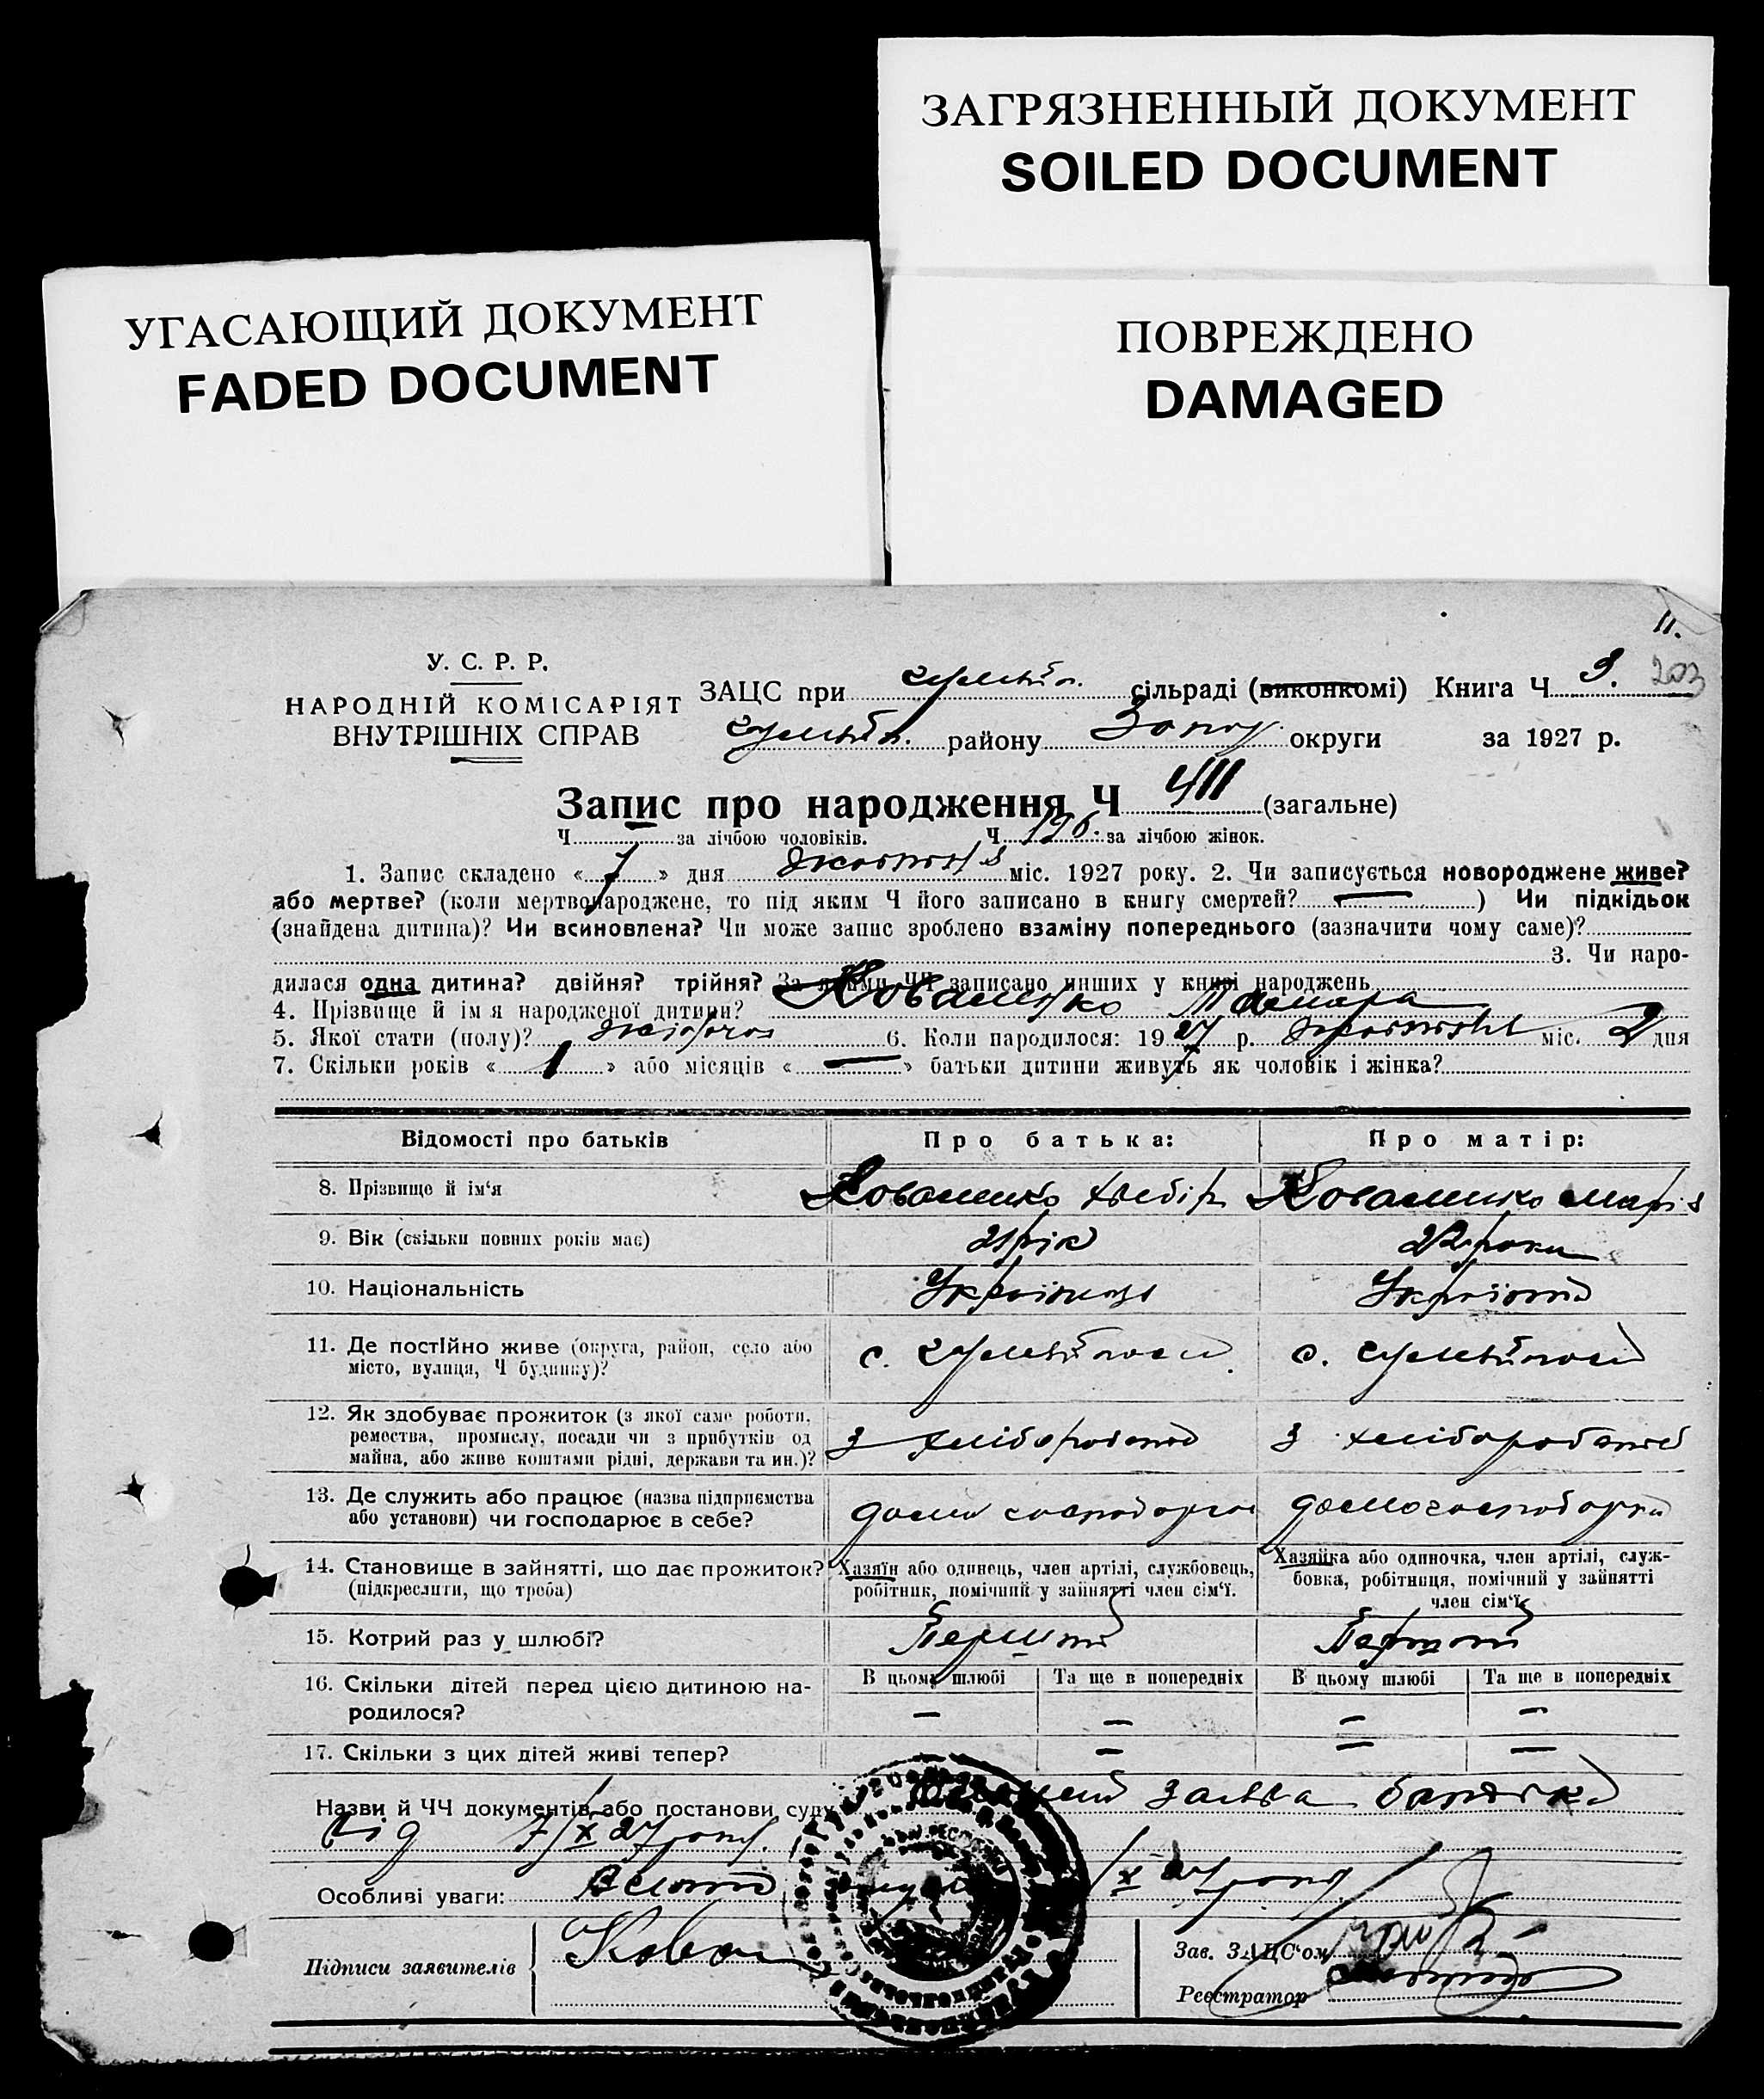 ЗАГРЯЗНЕННЫЙ ДОКУМЕНТ
SOILED DOCUMENT
УГАСАЮЩИЙ ДОКУМЕНТ
FADED DOCUMENT
ПОВРЕЖДЕНО
DAMAGED
11.
У. С. Р. Р.
НАРОДНІЙ КОМІСАРІЯТ
ВНУТРІШНІХ СПРАВ
ЗАЦС при сільраді (виконкомі) Книга Ч 9. 203
району Запор округи за 1927 р.
Запис про народження Ч 411 (загальне)
Ч за лічбою чоловіків. Ч 196. за лічбою жінок.
1. Запис складено « 7 » дня Жовтня міс. 1927 року. 2. Чи записується новороджене живе?
або мертве? (коли мертвонароджене, то під яким Ч його записано в книгу смертей? — ) Чи підкідьок
(знайдена дитина)? Чи всиновлена? Чи може запис зроблено взаміну попереднього (зазначити чому саме)?
3. Чи наро-
дилася одна дитина? двійня? трійня? За якими ЧЧ записано инших у книзі народжень
4. Прізвище й ім'я народженої дитини? Коваленко Тамара
5. Якої стати (полу)? жіноча 6. Коли народилося: 19 27 р. Жовтня міс. 2 дня
7. Скільки років « 1 » або місяців « — » батьки дитини живуть як чоловік і жінка?
Відомості про батьків Про батька: Про матір:
8. Прізвище й ім'я Коваленко Хведір Коваленко Марія
9. Вік (скільки повних років має) 21 рік 22 роки
10. Національність Українець Українка
11. Де постійно живе (округа, район, село або
місто, вулиця, Ч будинку)? с. с.
12. Як здобуває прожиток (з якої саме роботи,
ремества, промислу, посади чи з прибутків од
майна, або живе коштами рідні, держави та ин.)? З хліборобства З хліборобства
13. Де служить або працює (назва підприємства
або установи) чи господарює в себе?
14. Становище в зайнятті, що дає прожиток?
(підкреслити, що треба)
Хазяїн або одинець, член артілі, службовець,
робітник, помічний у зайнятті член сім'ї.
Хазяйка або одиночка, член артілі, служ-
бовка, робітниця, помічний у зайнятті
член сім'ї.
15. Котрий раз у шлюбі? Перший Перший
16. Скільки дітей перед цією дитиною на-
родилося?
В цьому шлюбі Та ще в попередніх В цьому шлюбі Та ще в попередніх
— — — —
17. Скільки з цих дітей живі тепер? — — —
Назви й ЧЧ документів або постанови суду заява батька
від 7/X 27 року.
Особливі уваги: /X 27 року
Підписи заявителів Ковал
Зав. ЗАЦС'ом
Реєстратор